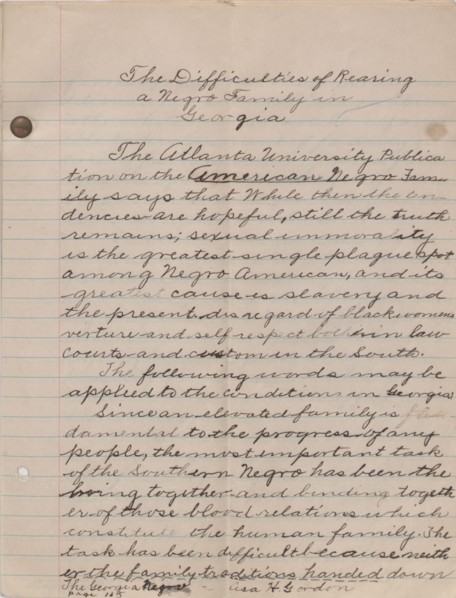 The Difficulties of Rearing
a Negro Family in
Georgia
The Atlanta University Publica
tion on the American Negro Fam-
ily says that While then the ten-
dencies are hopeful, still the truth
remains; sexual immorality
is the greatest single plague spot
among Negro American, and its
greatest cause is slavery and
the present disregard of black womens
verture and self respect both in law
courts and custom in the South.
The following words may be
applied to the conditions in Georgia
Since an elevated family is fun
damental to the progress of any
people, the most important task
of the Southern Negro has been the
together and binding togeth
er of those blood relations which
constitute the human family. The
task has been difficult because neith
er the family traditions handed down
The Georgia Negro - Asa H Gordon
page 165